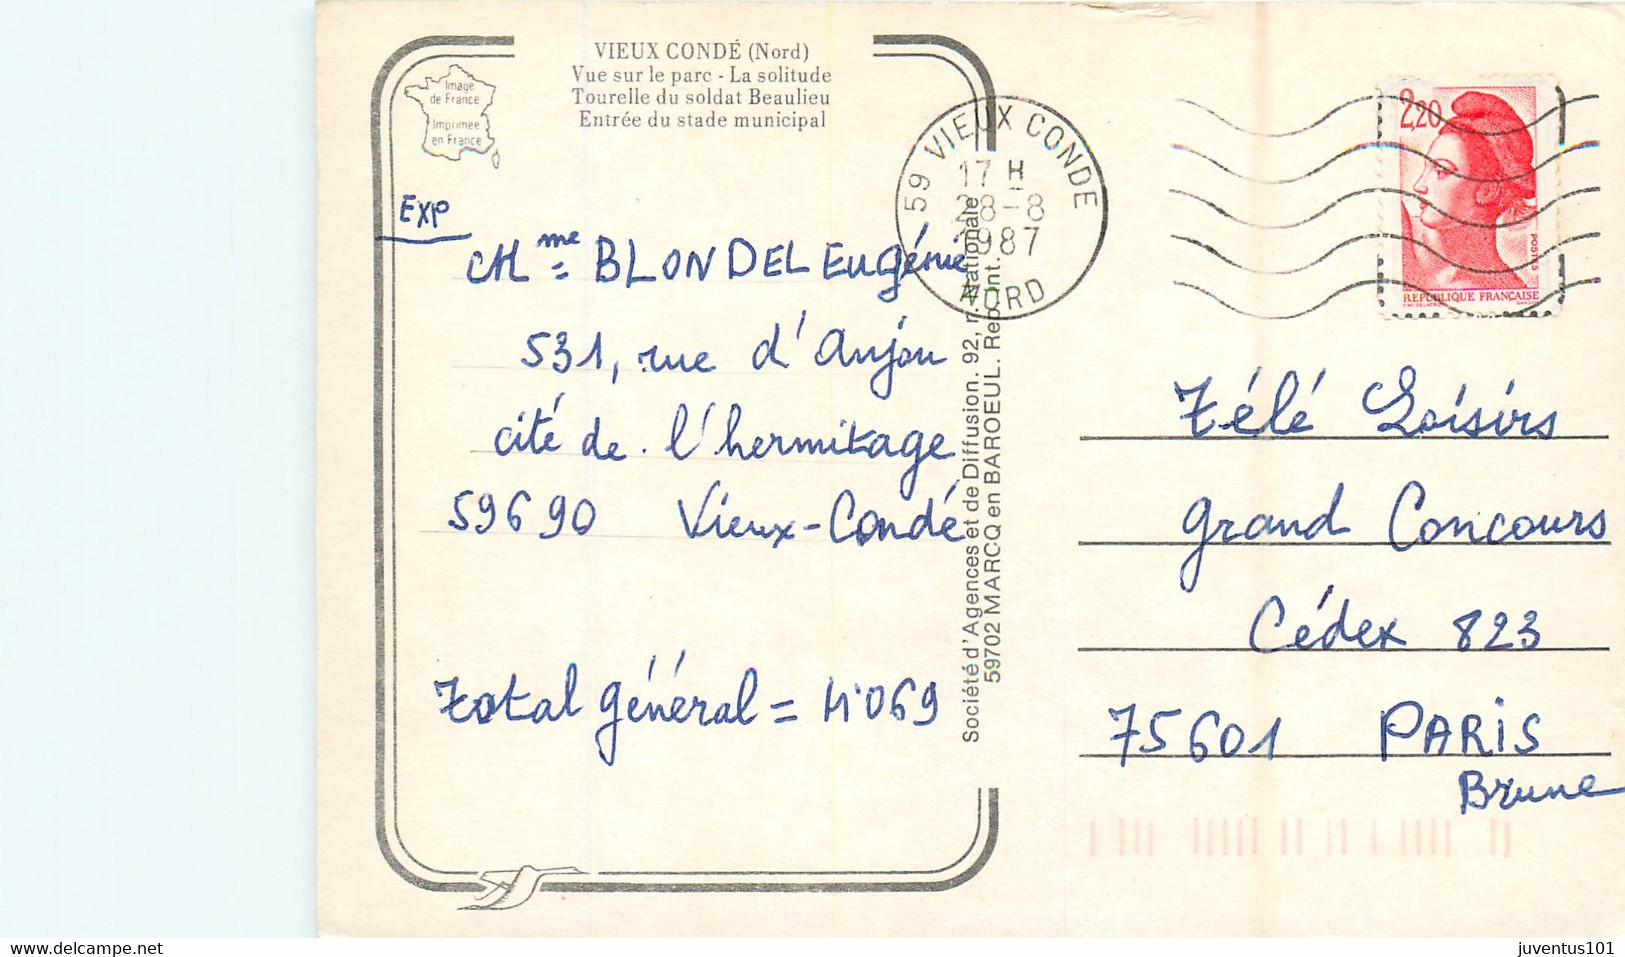 VIEUX CONDÉ (Nord)
Vue sur le parc - La solitude
Tourelle du soldat Beaulieu
Entrée du stade municipal
Image
de France
Imprimée
en France
EXP
Mme = BLONDEL Eugénie
531, rue d'Anjou
cité de l'hermitage
59690 Vieux-Condé
Total général = 4'069
Société d'Agences et de Diffusion. 92, r. Nationale
59702 MARCQ en BAROEUL. Rep. Int.
59 VIEUX CONDE
17 H
28-8
1987
NORD
2,20
POSTES
REPUBLIQUE FRANÇAISE
Télé Loisirs
grand Concours
Cédex 823
75601 PARIS
Brune
www.delcampe.net
juventus101